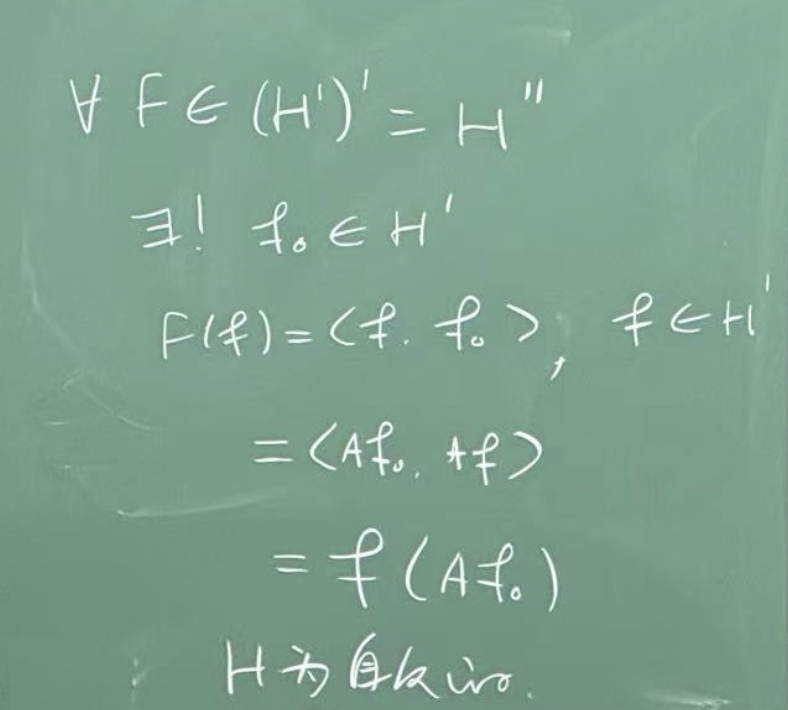 ∀ F ∈ (H')' = H''
∃! f₀ ∈ H'
F(f) = <f. f₀>, f ∈ H'
= <Af₀. Af>
= f(Af₀)
H为自反的.